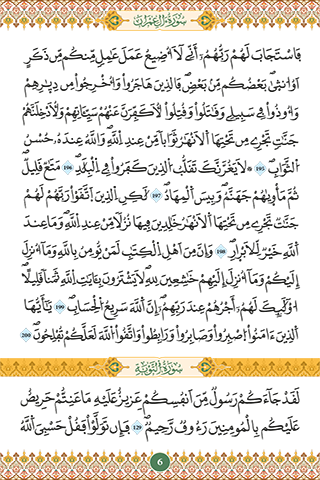 سُورَةُ اٰلِ عِمْرَانَ
فَاسْتَجَابَ لَهُمْ رَبُّهُمُۥٓ أَنِّے لَآ أُضِيعُ عَمَلَ عَٰمِلٖ مِّنكُم مِّن ذَكَرٍ
اَوُ ا۟نث۪ىٰۖ بَعْضُكُم مِّنۢ بَعْضٖۖ فَالذِينَ هَاجَرُوا۟ وَأُخْرِجُوا۟ مِن دِيٰ۪رِهِمْ
وَأُوذُوا۟ فِے سَبِيلِے وَقَٰتَلُوا۟ وَقُتِلُوا۟ لَأُكَفِّرَنَّ عَنْهُمْ سَيِّـَٔاتِهِمْ وَلَأُدْخِلَنَّهُمْ
جَنَّٰتٖ تَجْرِے مِن تَحْتِهَا اَ۬لَانْهَٰرُ ثَوَاباٗ مِّنْ عِندِ اِ۬للَّهِۖ وَاللَّهُ عِندَهُۥ حُسْنُ
اُ۬لثَّوَابِۖ 195 ۞ لَا يَغُرَّنَّكَ تَقَلُّبُ اُ۬لذِينَ كَفَرُوا۟ فِے اِ۬لْبِلَٰدِۖ 196 مَتَٰعٞ قَلِيلٞ
ثُمَّ مَأْو۪يٰهُمْ جَهَنَّمُۖ وَبِيسَ اَ۬لْمِهَادُۖ 197 لَٰكِنِ اِ۬لذِينَ اَ۪تَّقَوْا۟ رَبَّهُمْ لَهُمْ
جَنَّٰتٞ تَجْرِے مِن تَحْتِهَا اَ۬لَانْهَٰرُ خَٰلِدِينَ فِيهَا نُزُلاٗ مِّنْ عِندِ اِ۬للَّهِۖ وَمَا عِندَ
اَ۬للَّهِ خَيْرٞ لِّلَابْر۪ارِۖ 198 وَإِنَّ مِنَ اَهْلِ اِ۬لْكِتَٰبِ لَمَنْ يُّومِنُ بِاللَّهِ وَمَآ أُنزِلَ
إِلَيْكُمْ وَمَآ أُنزِلَ إِلَيْهِمْ خَٰشِعِينَ لِلهِ لَا يَشْتَرُونَ بِـَٔايَٰتِ اِ۬للَّهِ ثَمَناٗ قَلِيلاًۖ
ا۟وْلَٰٓئِكَ لَهُمُۥٓ أَجْرُهُمْ عِندَ رَبِّهِمُۥٓۖ إِنَّ اَ۬للَّهَ سَرِيعُ اُ۬لْحِسَابِۖ 199 يَٰٓأَيُّهَا
اَ۬لذِينَ ءَامَنُوا۟ اُ۪صْبِرُوا۟ وَصَابِرُوا۟ وَرَابِطُوا۟ وَاتَّقُوا۟ اُ۬للَّهَ لَعَلَّكُمْ تُفْلِحُونَۖ 200
سُورَةُ التَّوْبَةِ
لَقَدْ جَآءَكُمْ رَسُولٞ مِّنَ اَنفُسِكُمْ عَزِيزٌ عَلَيْهِ مَا عَنِتُّمْ حَرِيصٌ
عَلَيْكُم بِالْمُومِنِينَ رَءُوفٞ رَّحِيمٞۖ 129 فَإِن تَوَلَّوْا۟ فَقُلْ حَسْبِيَ اَ۬للَّهُ
6